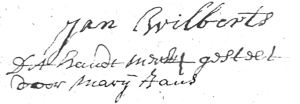 Jan Wilberts
Dit handt merk gestelt
door Marij Hans